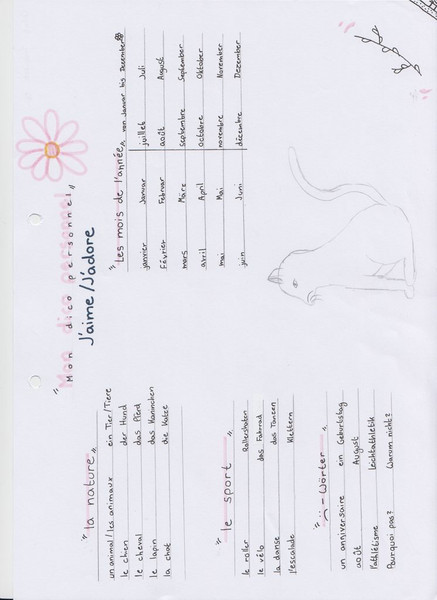 "Mon dico personnel"
J'aime/J'adore
"la nature"
un animal/les animaux ein Tier/Tiere
le chien der Hund
le cheval das Pferd
le lapin das Kaninchen
la chat die Katze
"le sport"
le roller Rollerskaten
le vélo das Fahrrad
la danse das Tanzen
l'escalade Klettern
-Wörter"
un anniversaire ein Geburtstag
août August
l'athlétisme Leichtathletik
Pourquoi pas? Warum nicht?
"Les mois de l'année" von Januar bis Dezember
janvier Januar juillet Juli
février Februar août August
mars März septembre September
avril April octobre Oktober
mai Mai novembre November
juin Juni décembre Dezember